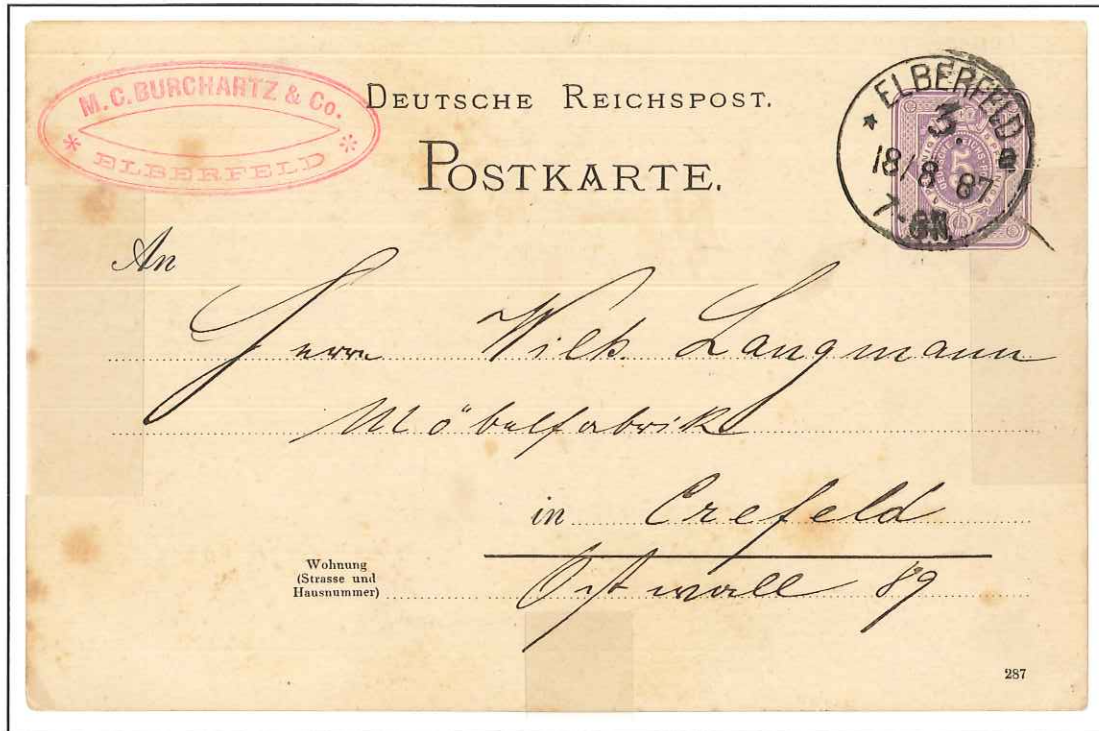 M. C. BURCHARTZ & Co.
* ELBERFELD *
DEUTSCHE REICHSPOST.
POSTKARTE.
* ELBERFELD *
3.
18/8 87
7-8N.
An
Herrn Wilh. Langmann
Möbelfabrik
in Crefeld
Wohnung
(Strasse und
Hausnummer)
Ostwall 89
287